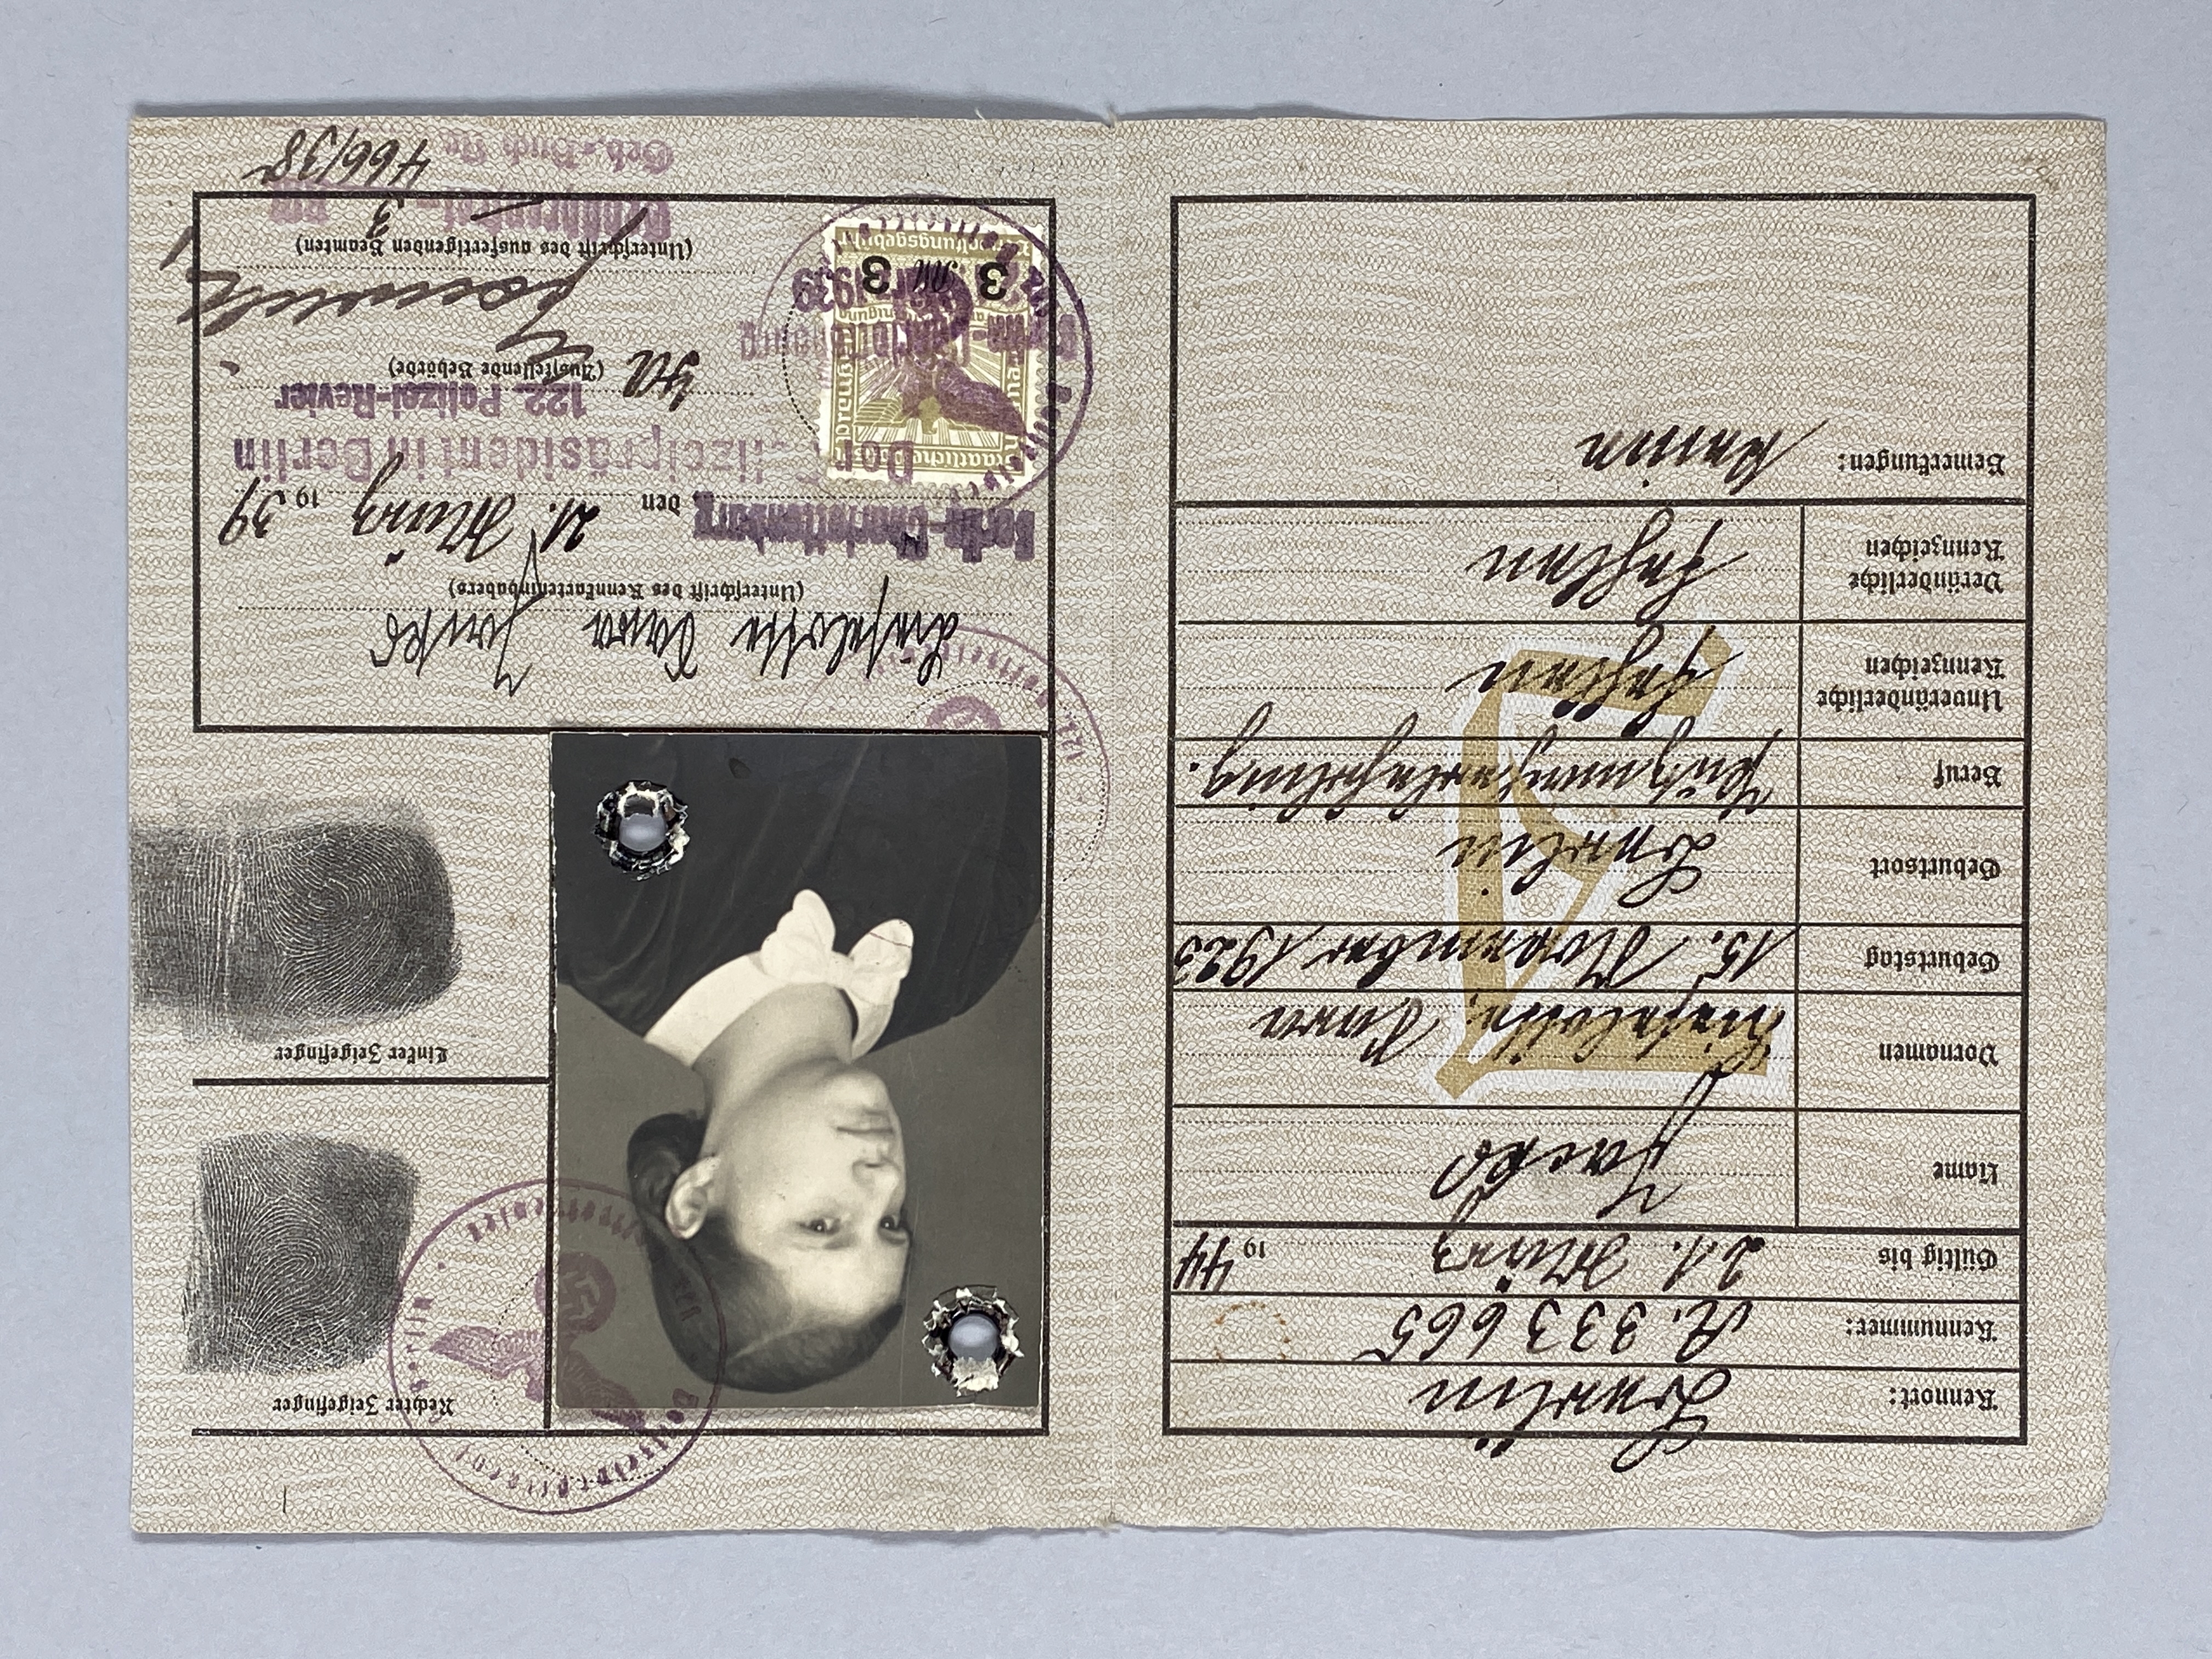 Kennort: Berlin
Kennummer: A. 333665
Gültig bis 21. März 1944
Name Jacks
Vornamen Lieselotte, Sara
Geburtstag 15. November 1923
Geburtsort Berlin
Beruf Putzmacherlehrling.
Unveränderliche
Kennzeichen fehlen
Veränderliche
Kennzeichen fehlen
Bemerkungen: Keine
J
Rechter Zeigefinger
Linker Zeigefinger
Lieselotte Sara Jacks
(Unterschrift des Kennkarteninhabers)
Berlin-Charlottenburg, den 21. März 1939
Der Polizeipräsident in Berlin
122. Polizei-Revier
(Ausstellende Behörde)
(Unterschrift des ausfertigenden Beamten)
3 RM
Geb.-Buch Nr. 466/38
Berlin-Charlottenburg
1939
3 RM 3